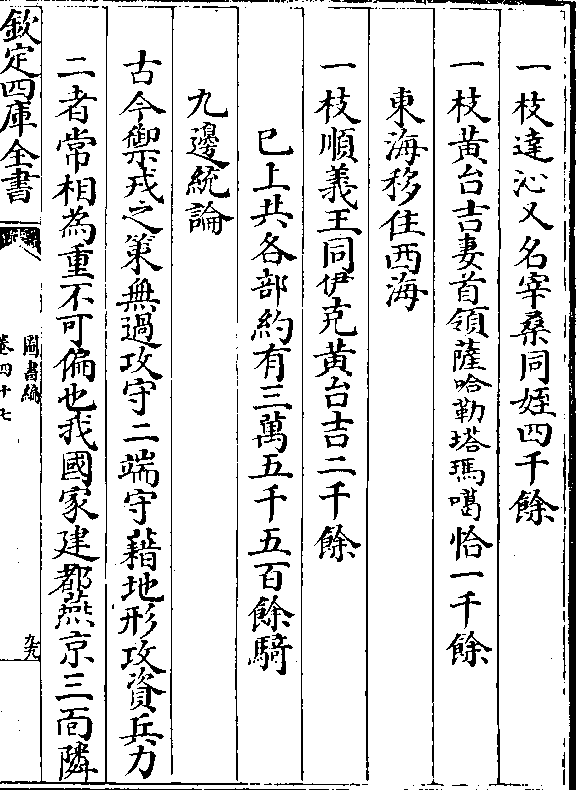 一枝達沁又名宰桑同姪四千餘
一枝黃台吉妻首領薩哈勒塔瑪噶恰一千餘
東海移住西海
一枝順義王同伊克黃台吉二千餘
已上共各部約有三萬五千五百餘騎
九邊統論
古今禦戎之策無過攻守二端守藉地形攻資兵力
二者常相為重不可偏也我國家建都燕京三面隣
欽定四庫全書
圖書編
卷四十七